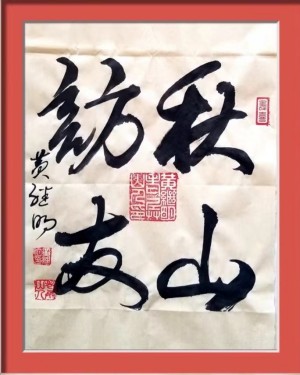 秋山
訪友
黄继明